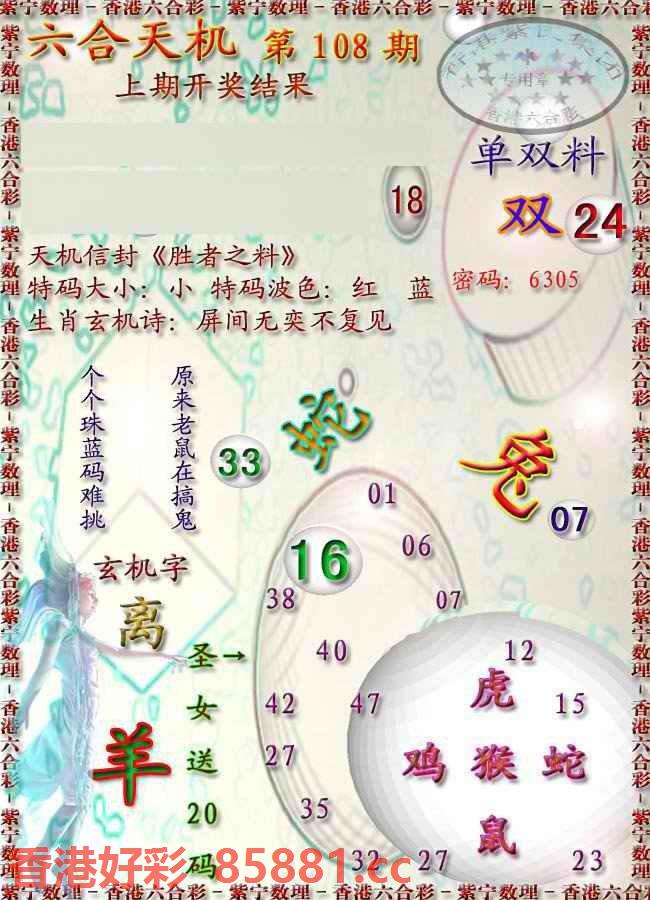 紫宁数理－香港六合彩－紫宁数理－香港六合彩－紫宁数理－香港六合彩
六合天机 第 108 期
上期开奖结果
香港紫宁集团
专用章
香港六合彩
单双料
18
双 24
天机信封《胜者之料》
特码大小：小 特码波色：红 蓝
密码：6305
生肖玄机诗：屏间无奕不复见
个个珠蓝码难挑
原来老鼠在搞鬼
33
蛇
兔
07
01
16
06
玄机字
离
38
07
圣→
女
送
20
码
40
12
42
47
虎
15
羊
27
鸡 猴 蛇
35
鼠
32
27
23
香港好彩 85881.cc
紫宁数理－香港六合彩－紫宁数理－香港六合彩－紫宁数理－香港六合彩